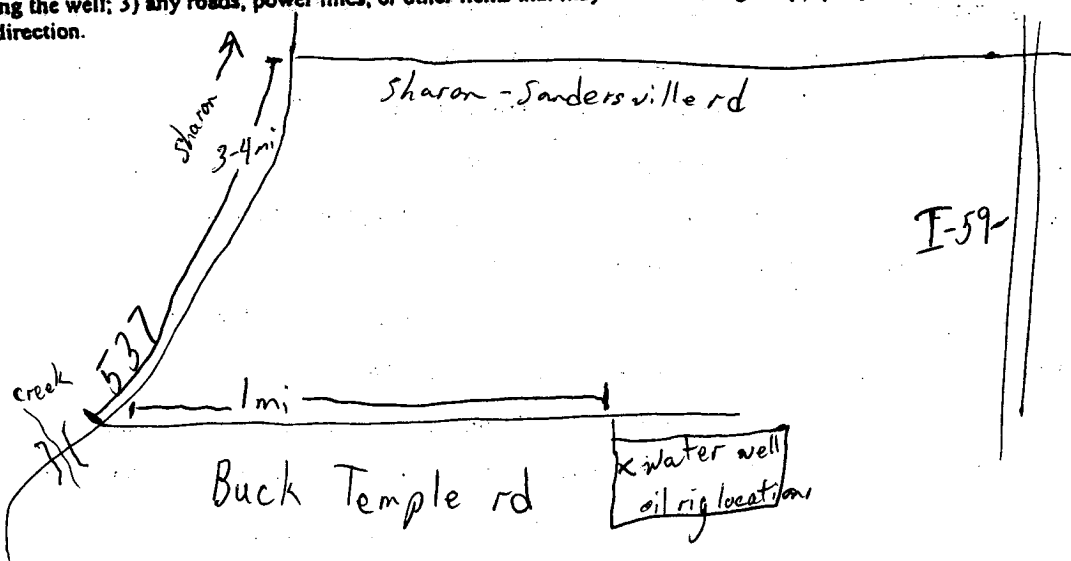 ing the well; 3) any roads, power lines, or other items that may
direction.
Sharon
Sharon-Sandersville rd
3-4 mi
I-59
537
creek
1 mi
Buck Temple rd
x water well
oil rig location